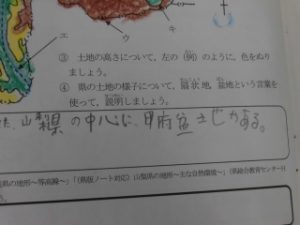 エ
ウ
キ
③ 土地の高さについて，左の(例)のように，色をぬり
ましょう。
④ 県の土地の様子について，扇状地，盆地という言葉を
使って，説明しましょう。
た、山梨県の中心に、甲府盆
県の地形～等高線～」「〈県版ノート対応〉山梨県の地形～主な自然環境～」(県総合教育センターH